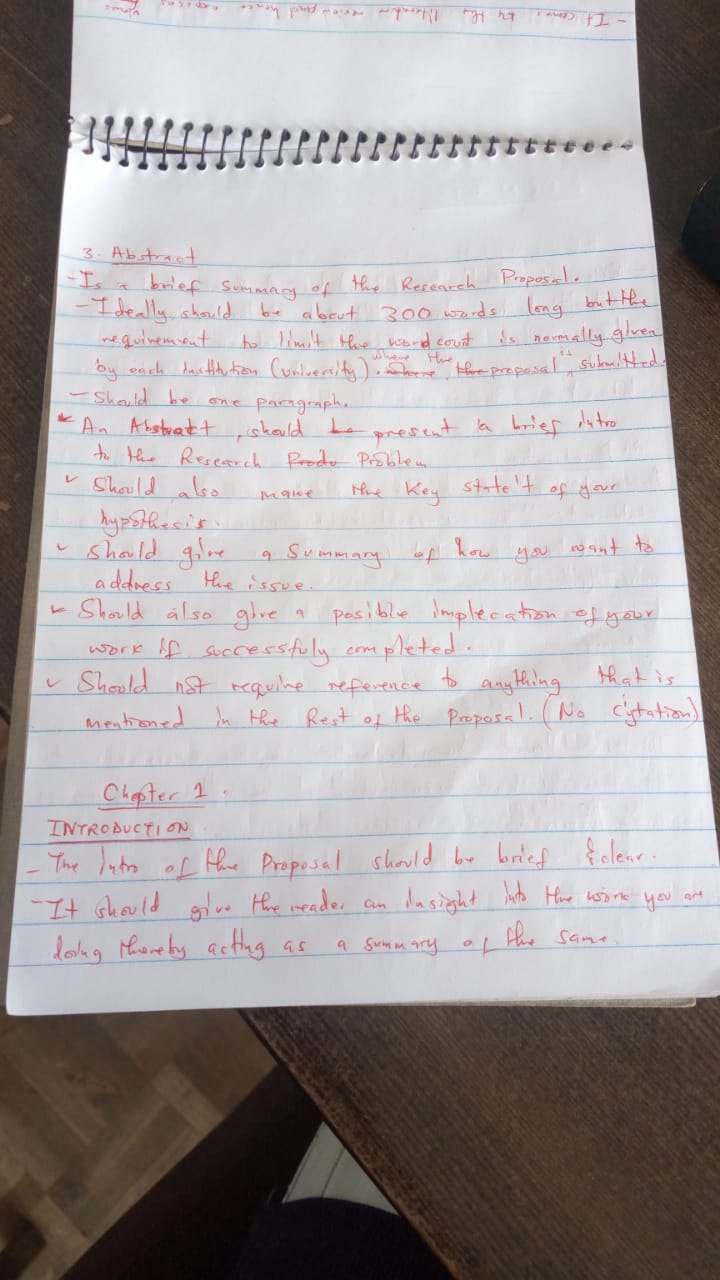 - It comes by the literature review and hence exposes views
3. Abstract
- Is a brief summary of the Research Proposal.
- Ideally, should be about 300 words long but the
requirement to limit the word count is normally given
by each institution (university). where the proposal is submitted.
- Should be one paragraph.
* An Abstract, should present a brief intro
to the Research Problem
✓ Should also make the key state't of your
hypothesis.
✓ Should give a summary of how you want to
address the issue.
✓ Should also give a posible implecation of your
work if successfuly completed.
✓ Should not require reference to anything that is
mentioned in the Rest of the proposal. (No Cytation)
Chapter 1.
INTRODUCTION
- The Intro of the Proposal should be brief & clear.
- It should give the reader an insight into the work you are
doing thereby acting as a summary of the same.